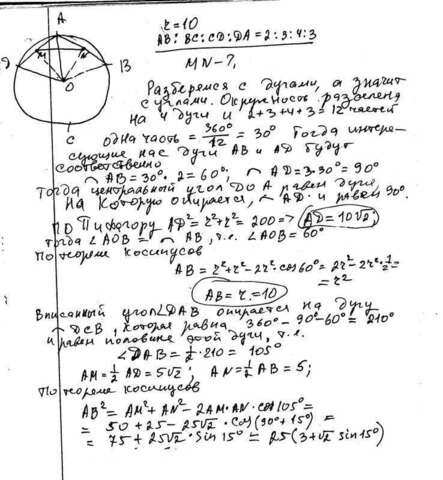 A
M
N
Д
B
O
C
r = 10
AB : BC : CD : DA = 2 : 3 : 4 : 3
MN - ?
Разберемся с дугами, а значит
с углами. Окружность разделена
на 4 дуги и 2+3+4+3=12 частей
одна часть = 360°/12 = 30° Тогда интере-
сующие нас дуги AB и AD будут
соответственно
◠ AB = 30°·2 = 60°, ◠ AD = 3·30° = 90°
Тогда центральный угол DOA равен дуге,
на которую опирается, ◠ AD и равен 90°.
По Пифагору AD² = r² + r² = 200 => AD = 10√2;
тогда ∠AOB = ◠ AB, т.е. ∠AOB = 60°
По теореме косинусов
AB = r² + r² - 2r²·cos 60° = 2r² - 2r²·1/2 =
= r²
AB = r = 10
Вписанный угол ∠DAB опирается на дугу
◠ DCB, которая равна 360° - 90° - 60° = 210°
и равен половине этой дуги, т.е.
∠DAB = 1/2·210 = 105°
AM = 1/2 AD = 5√2; AN = 1/2 AB = 5;
По теореме косинусов
AB² = AM² + AN² - 2AM·AN·cos 105° =
= 50 + 25 - 25√2·cos(90° + 15°) =
= 75 + 25√2·sin 15° = 25(3 + √2 sin 15°)